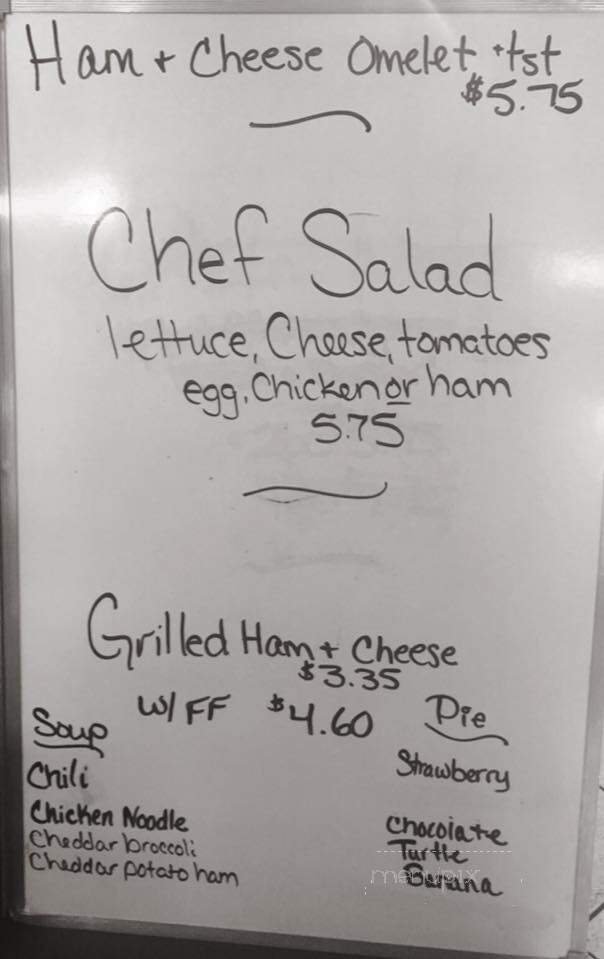 Ham + Cheese Omelet + tst
$5.75
Chef Salad
lettuce, Cheese, tomatoes
egg, Chicken or ham
5.75
Grilled Ham + Cheese
$3.35
W/ FF $4.60
Soup
Chili
Chicken Noodle
Cheddar broccoli
Cheddar potato ham
Pie
Strawberry
Chocolate
Turtle
Banana
menupix